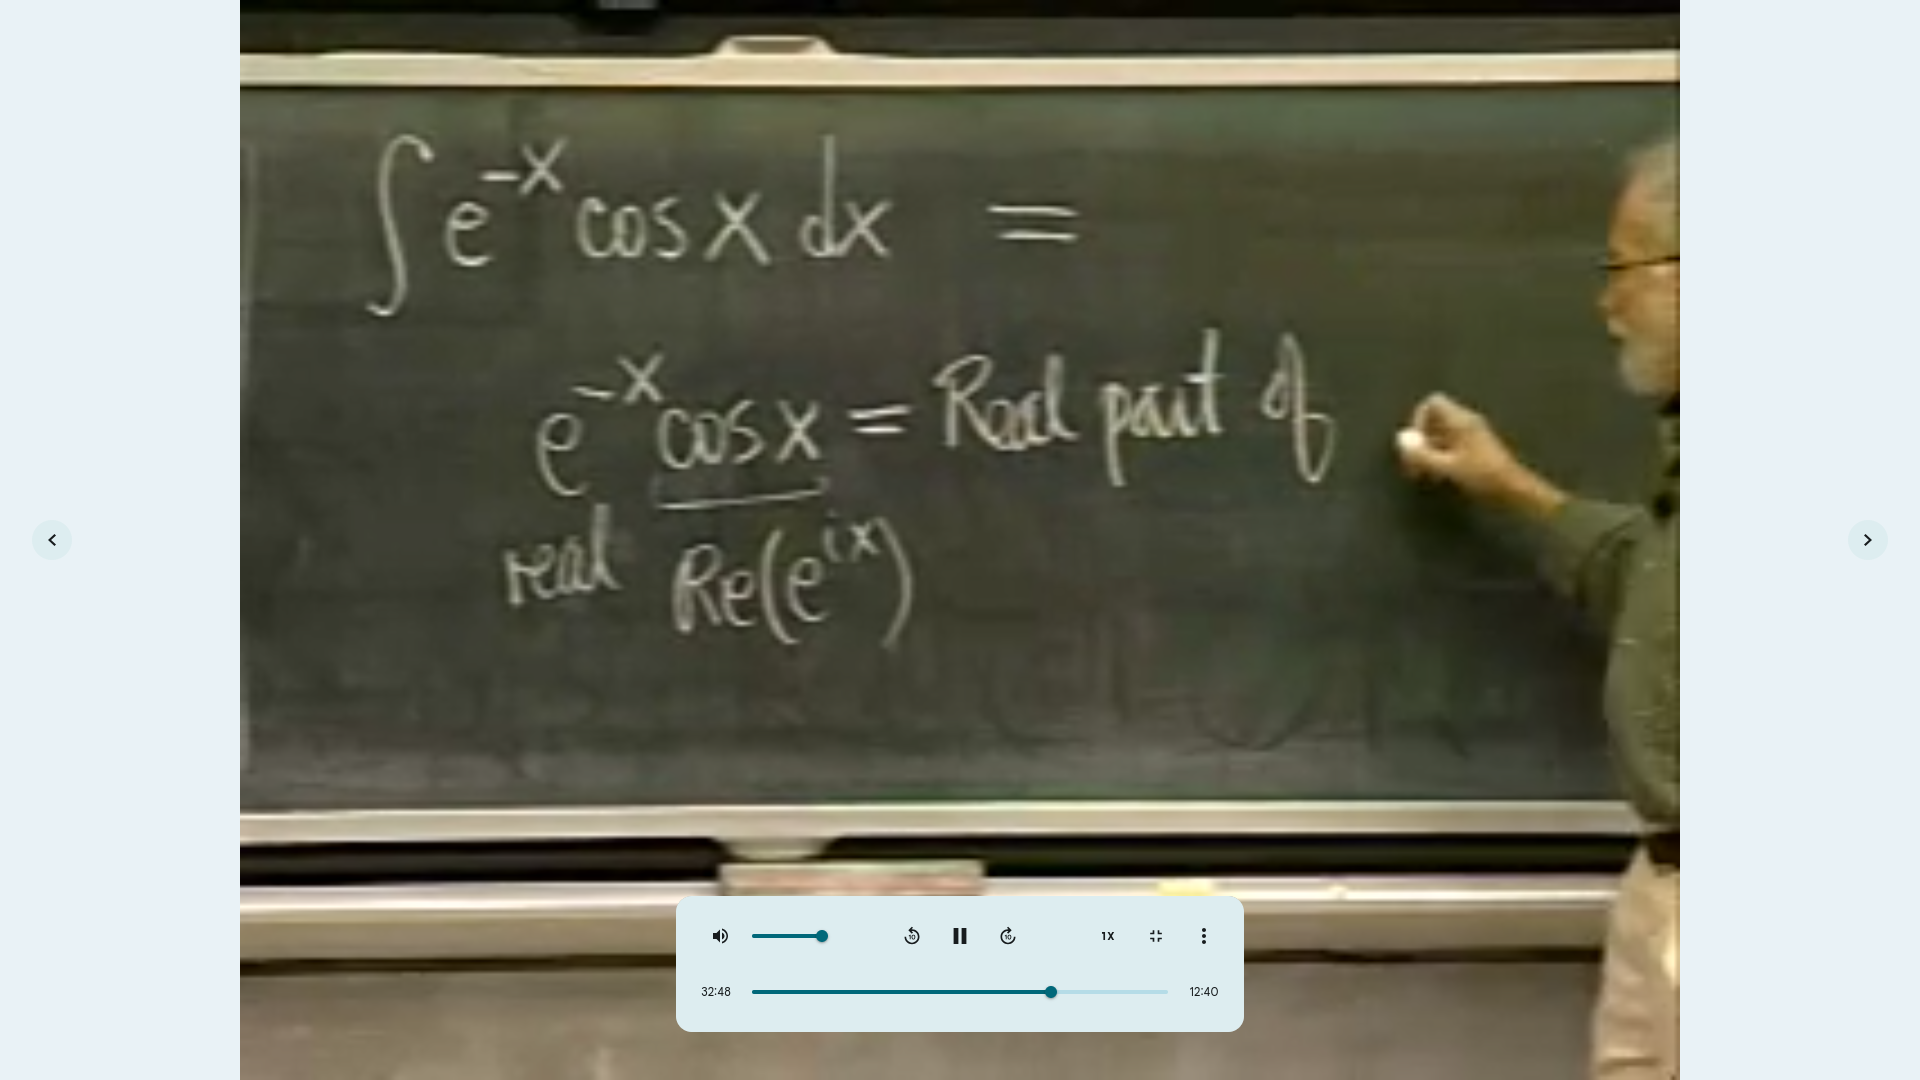 ∫ e^{-x} cos x dx =
e^{-x} cos x = Real part of
real Re(e^{ix})
10 10 1X
32:48 12:40